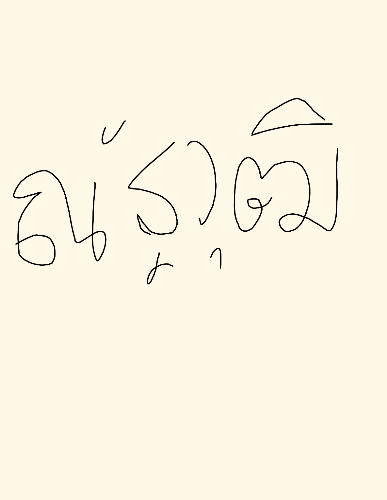 ณัฐวุฒิ